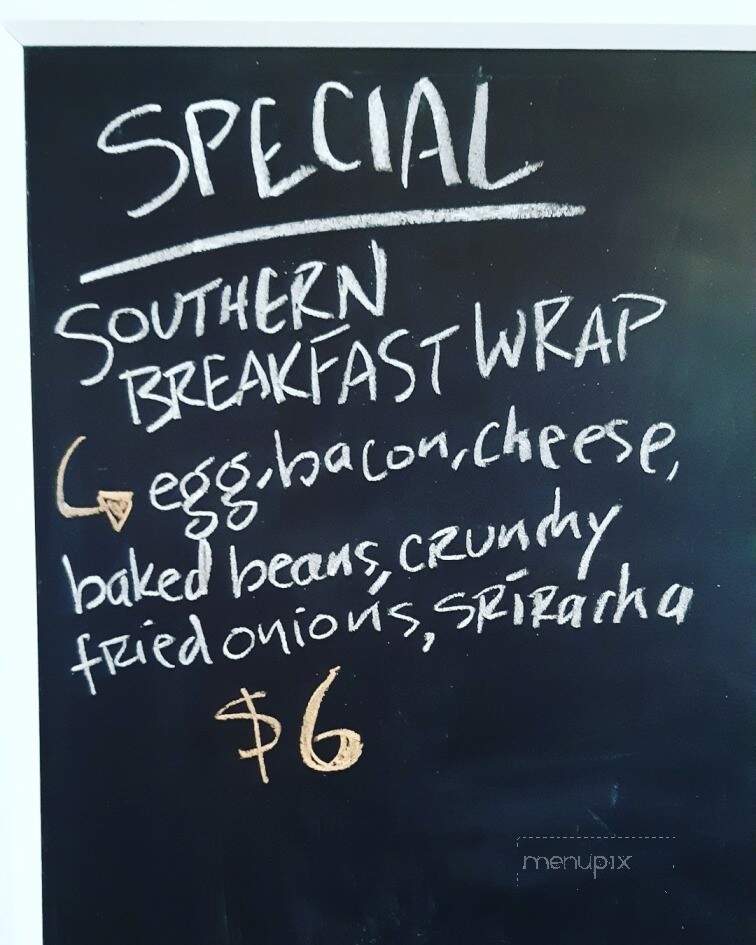 SPECIAL
SOUTHERN
BREAKFAST WRAP
egg, bacon, cheese,
baked beans, crunchy
fried onions, sriracha
$6
menupix